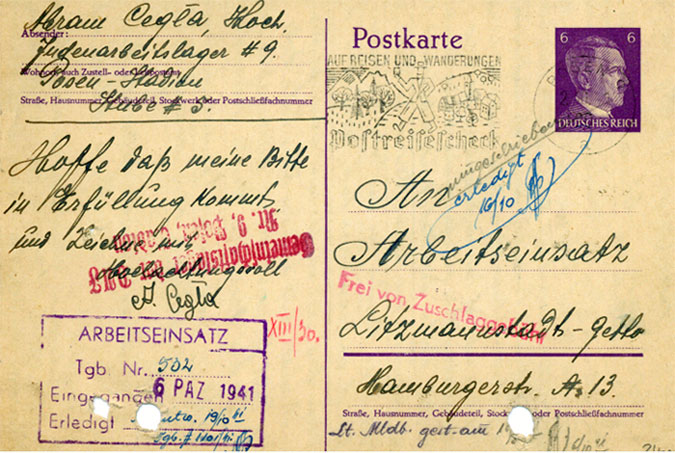 Abram Cegła, Koch.
Absender:
Judenarbeitslager # 9.
Wohnort, auch Zustell- oder Leitpostamt
Posen-Stadion
Stube # 5.
Straße, Hausnummer, Gebäudeteil, Stockwerk oder Postschließfachnummer
Hoffe daß meine Bitte
in Erfüllung kommt
und Zeichne mit
Hochachtungsvoll
A. Cegła
Gemeinschaftslager der DAF
Nr. 9, Posen,
XIII/30.
ARBEITSEINSATZ
Tgb. Nr. 532
Eingegangen 6 PAZ 1941
Erledigt 19/10 41
Postkarte
6 6
DEUTSCHES REICH
AUF REISEN UND WANDERUNGEN
Postreisescheck
erledigt
16/10
An
Arbeitseinsatz
Frei von Zuschlaggebühr
Litzmannstadt-Getto
Hamburgerstr. A 13.
Straße, Hausnummer, Gebäudeteil, Stockwerk oder Postschließfachnummer
Lt. Mldb. gest. am